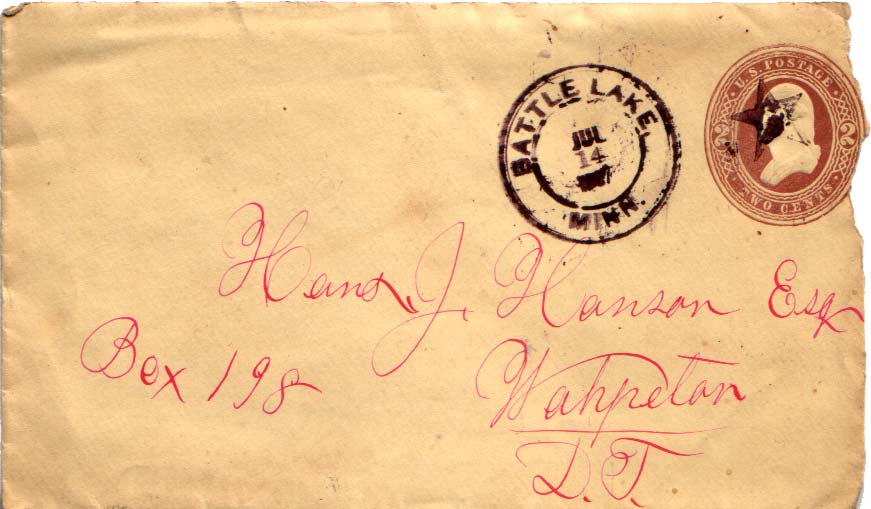 BATTLE LAKE,
JUL
14
MINN.
U.S. POSTAGE
2 2
TWO CENTS
Hans J. Hanson Esq
Box 198
Wahpeton
D.T.